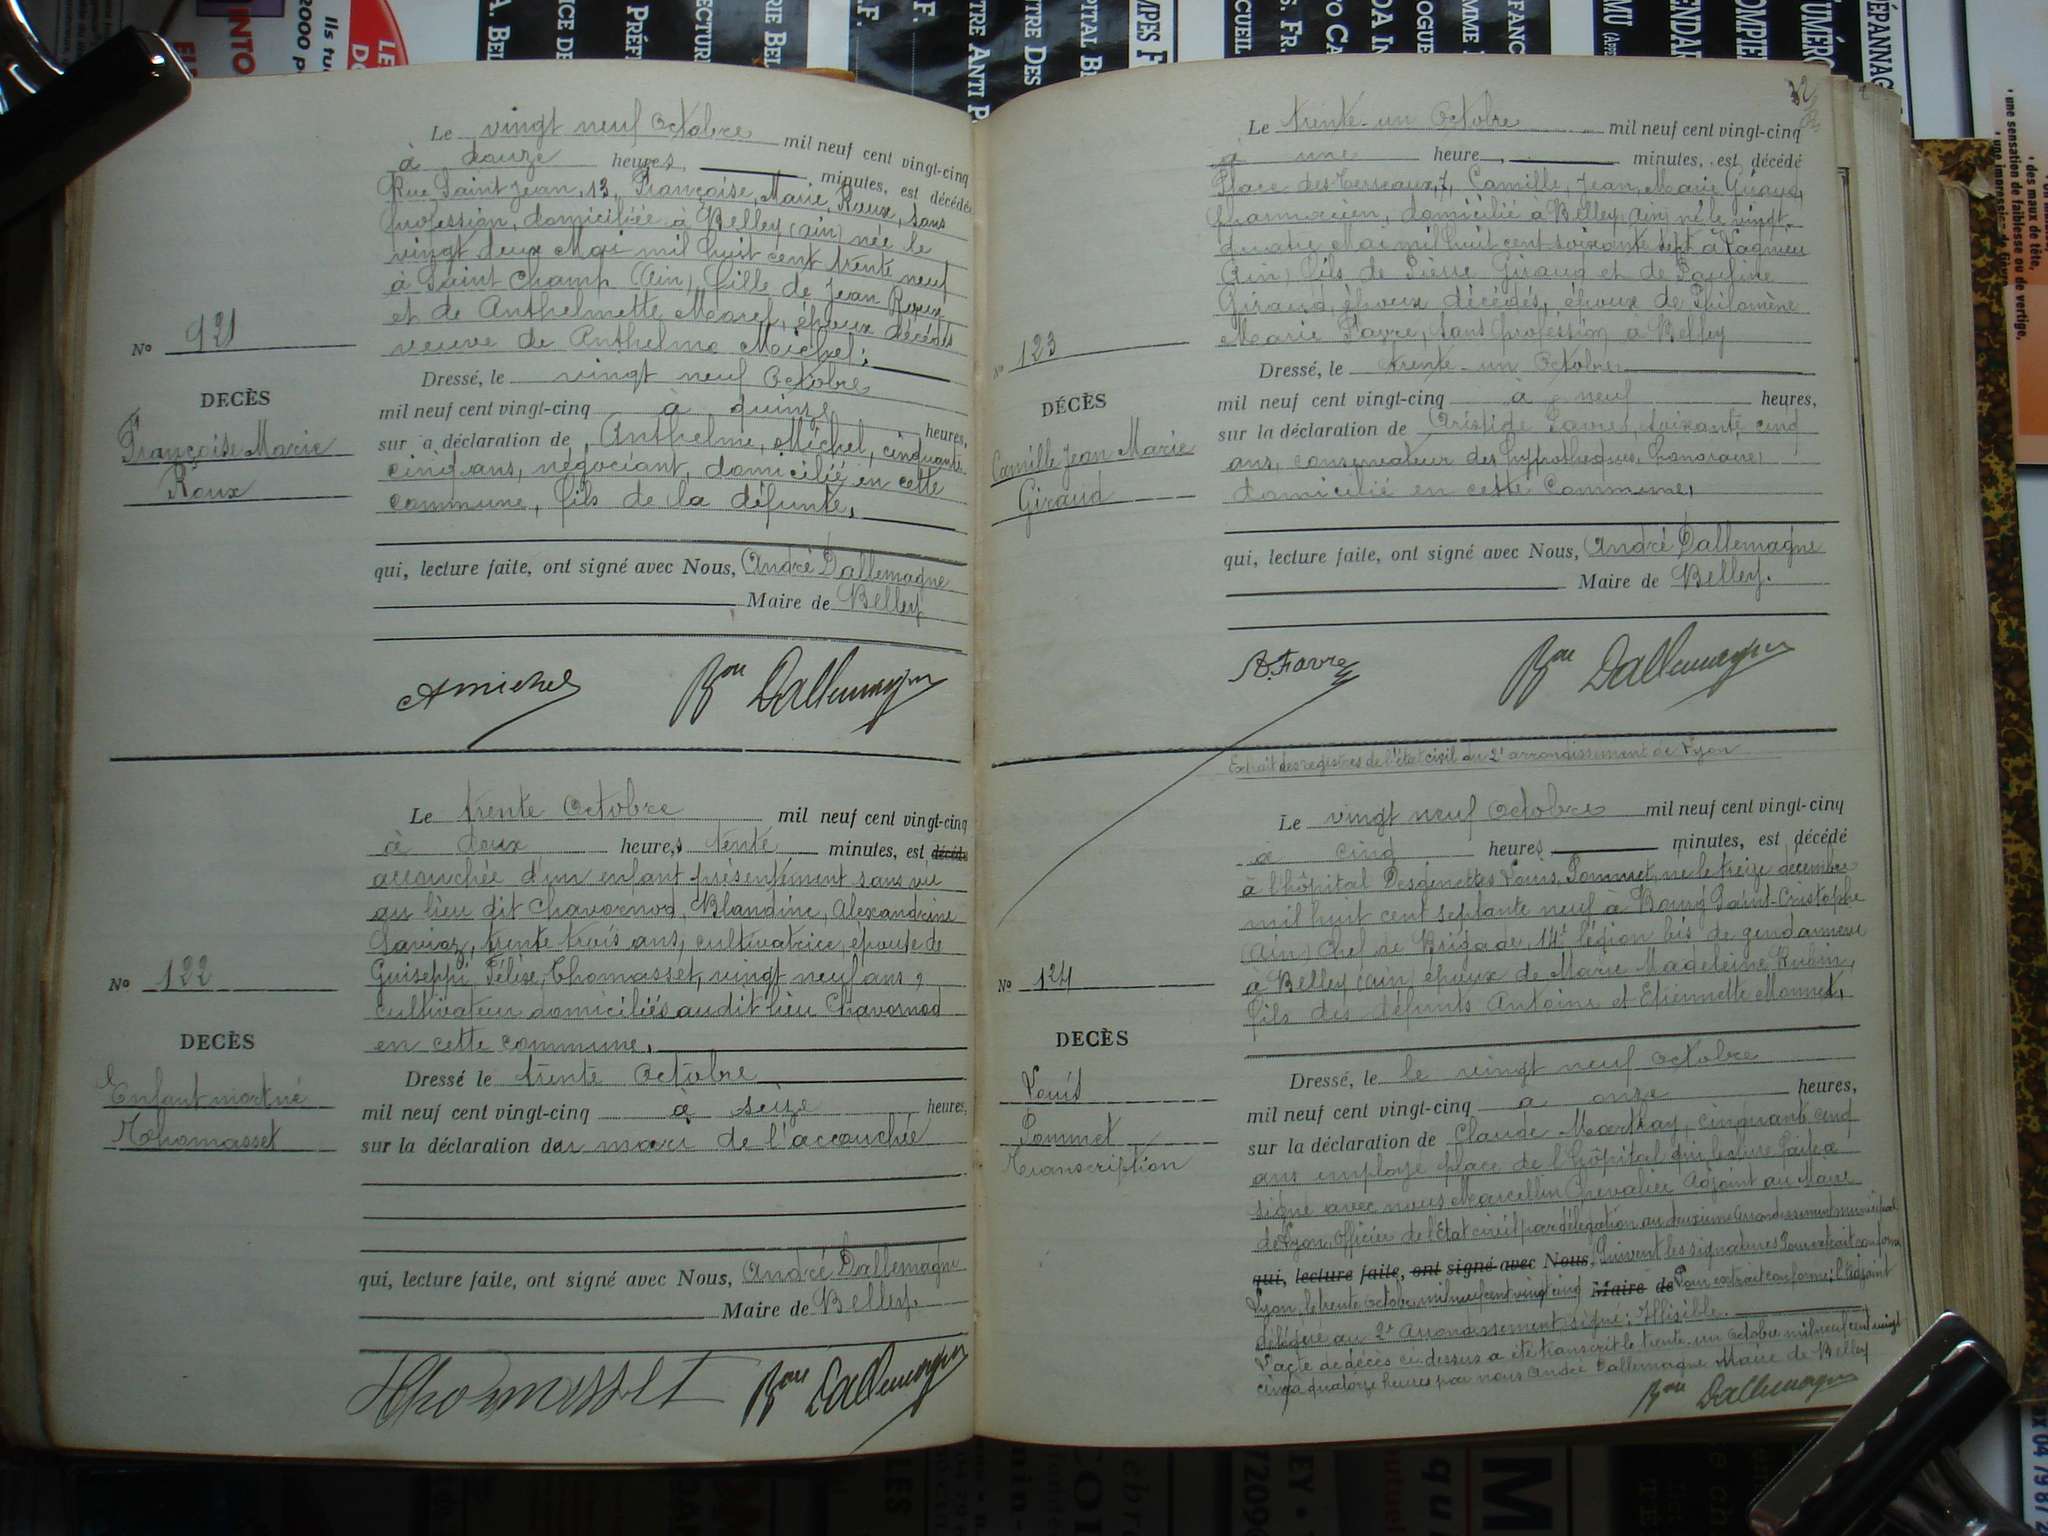 Le vingt neuf Octobre mil neuf cent vingt-cinq
à douze heures, minutes, est décédé
Rue Saint Jean, 13, Françoise, Marie, Roux, sans
profession, domiciliée à Belley (ain) née le
vingt deux Mai mil huit cent trente neuf
à Saint Champ (Ain), fille de Jean Roux
et de Anthelmette Morel, époux décédés
veuve de Anthelme Michel.
Nº 921
DECÈS
Françoise Marie
Roux
Dressé, le vingt neuf Octobre
mil neuf cent vingt-cinq à quinze heures,
sur a déclaration de Anthelme, Michel, cinquante
cinq ans, négociant, domicilié en cette
commune, fils de la défunte,
qui, lecture faite, ont signé avec Nous, André Dallemagne
Maire de Belley
AMichel Bon Dallemagne
Le trente Octobre mil neuf cent vingt-cinq
à deux heures trente minutes, est décédé
accouchée d'un enfant présentement sans vie
au lieu dit Chavornod, Blandine, Alexandrine
Savioz, trente trois ans, cultivatrice, épouse de
Guiseppi Félise, Thomasset, vingt neuf ans,
cultivateur domiciliés audit lieu Chavornod
en cette commune.
Nº 122
DECÈS
Enfant mort né
Thomasset
Dressé le trente Octobre
mil neuf cent vingt-cinq à seize heures,
sur la déclaration du mari de l'accouchée
qui, lecture faite, ont signé avec Nous, André Dallemagne
Maire de Belley.
Thomasset Bon Dallemagne
Le trente-un Octobre mil neuf cent vingt-cinq
à une heure, minutes, est décédé
Place des Terreaux, 7, Camille, Jean, Marie Giraud,
pharmacien, domicilié à Belley (ain) né le vingt
quatre Mai mil huit cent soixante sept à Lagnieu
(Ain) fils de Pierre Giraud et de Pauline
Giraud, époux décédés, époux de Philomène
Marie Favre, sans profession à Belley
Nº 123
DÉCÈS
Camille Jean Marie
Giraud
Dressé, le trente-un Octobre
mil neuf cent vingt-cinq à neuf heures,
sur la déclaration de Aristide Favre, soixante cinq
ans, conservateur des hypothèques, honoraire,
domicilié en cette Commune,
qui, lecture faite, ont signé avec Nous, André Dallemagne
Maire de Belley.
A. Favre Bon Dallemagne
Extrait des registres de l'état civil du 2e arrondissement de Lyon
Le vingt neuf Octobre mil neuf cent vingt-cinq
à cinq heures minutes, est décédé
à l'hôpital Desgenettes Louis, Pommet, né le treize décembre
mil huit cent septante neuf à Bourg Saint-Cristophe
(Ain) Chef de Brigade, 14e légion bis de gendarmerie
à Belley (ain) époux de Marie Madeleine Rubin,
fils des défunts Antoine et Etiennette Monnet,
Nº 124
DECÈS
Louis
Pommet
Transcription
Dressé, le le vingt neuf Octobre
mil neuf cent vingt-cinq à onze heures,
sur la déclaration de Claude Martray, cinquante cinq
ans employé place de l'hôpital qui lecture faite a
signé avec nous Marcellin Chevalier Adjoint au Maire
de Lyon, Officier de l'Etat civil par délégation au deuxième Arrondissement municipal
qui, lecture faite, ont signé avec Nous, Suivent les signatures Pour extrait conforme
Lyon, le trente Octobre mil neuf cent vingt cinq Maire de Pour extrait conforme: l'Adjoint
délégué au 2e Arrondissement signé: Illisible.
L'acte de décès ci-dessus a été transcrit le trente-un Octobre mil neuf cent vingt
cinq à quatorze heures par nous André Dallemagne Maire de Belley
Bon Dallemagne